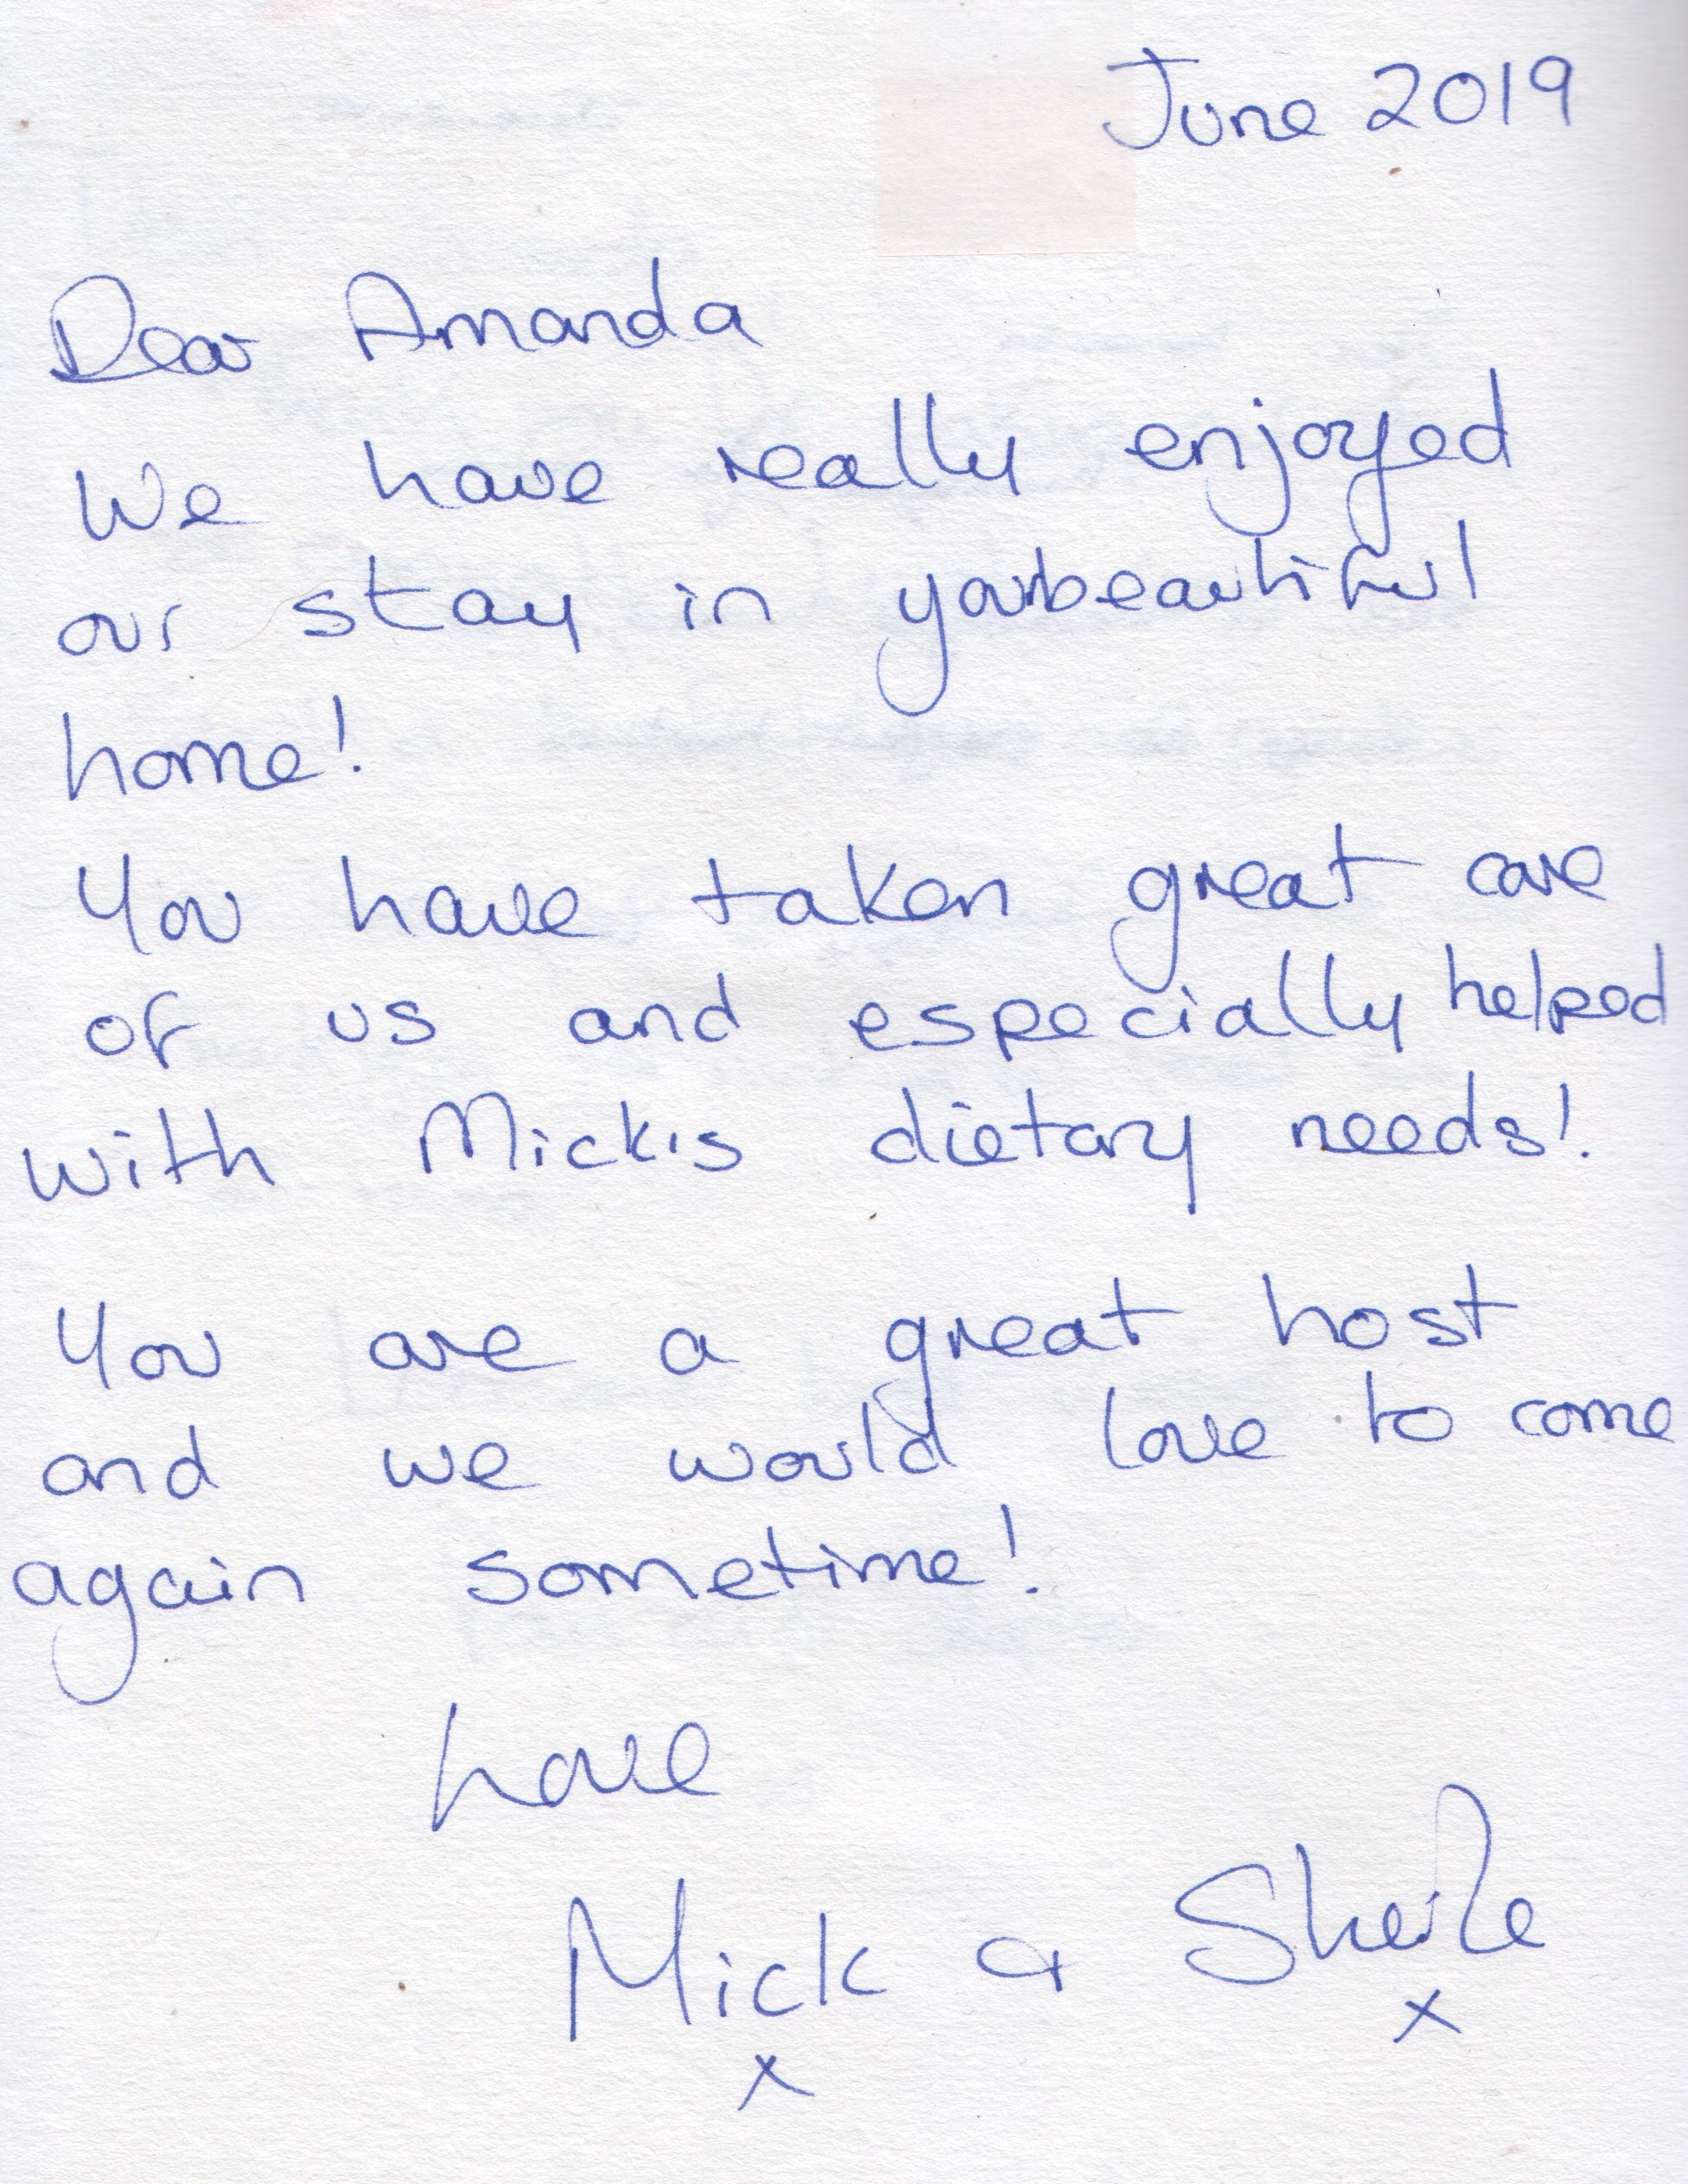 June 2019
Dear Amanda
We have really enjoyed
our stay in your beautiful
home!
You have taken great care
of us and especially helped
with Mick's dietary needs!
You are a great host
and we would love to come
again sometime!
Love
Mick & Sheila
x x